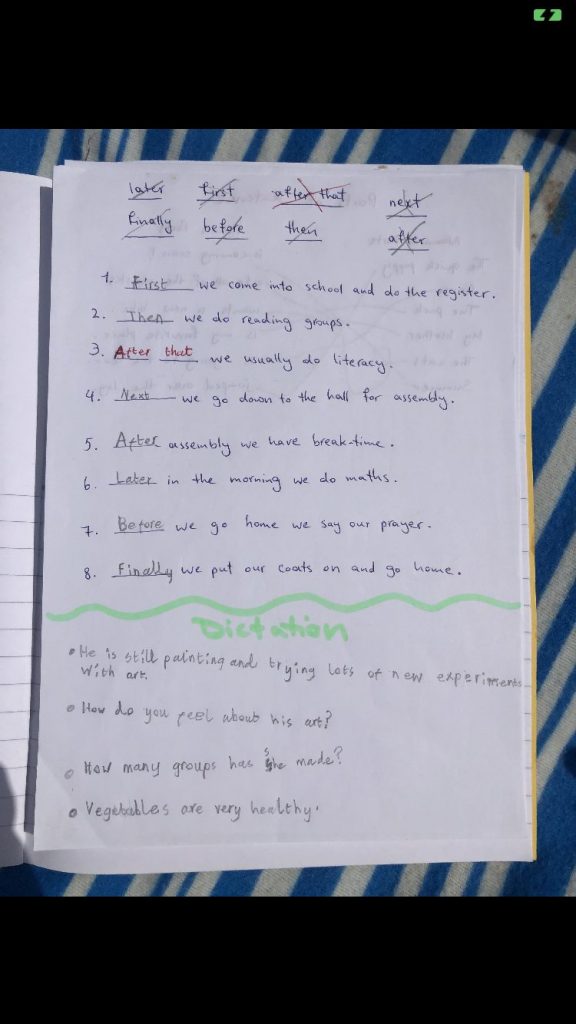 later first after that next
finally before then after
1. First we come into school and do the register.
2. Then we do reading groups.
3. After that we usually do literacy.
4. Next we go down to the hall for assembly.
5. After assembly we have break-time.
6. Later in the morning we do maths.
7. Before we go home we say our prayer.
8. Finally we put our coats on and go home.
Dictation
• He is still painting and trying lots of new experiments
with art.
• How do you feel about his art?
• How many groups has she made?
• Vegetables are very healthy.